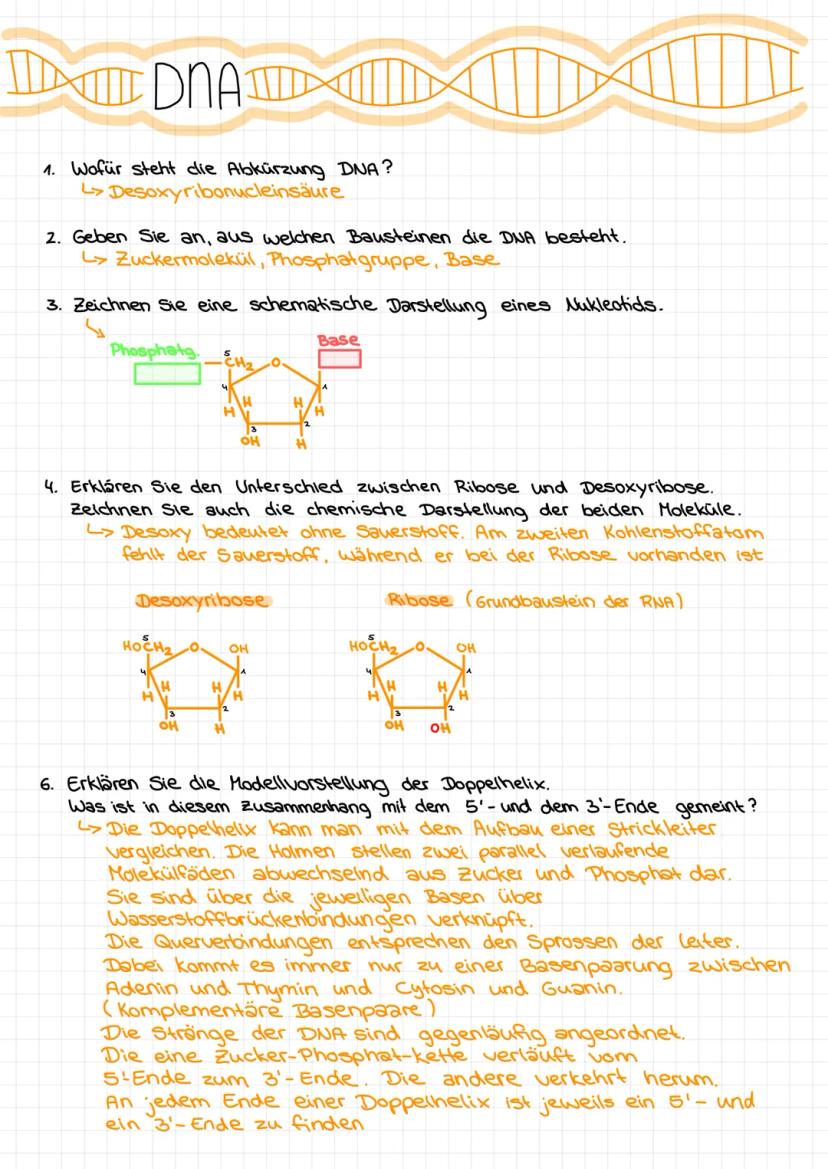 DNA
1. Wofür steht die Abkürzung DNA?
↳ Desoxyribonucleinsäure
2. Geben Sie an, aus welchen Bausteinen die DNA besteht.
↳ Zuckermolekül, Phosphatgruppe, Base
3. Zeichnen Sie eine schematische Darstellung eines Nukleotids.
Phosphatg. Base
5
CH₂ O
4 1
H H H H
3 2
OH H
4. Erklären Sie den Unterschied zwischen Ribose und Desoxyribose.
Zeichnen Sie auch die chemische Darstellung der beiden Moleküle.
↳ Desoxy bedeutet ohne Sauerstoff. Am zweiten Kohlenstoffatom
fehlt der Sauerstoff, während er bei der Ribose vorhanden ist
Desoxyribose Ribose (Grundbaustein der RNA)
5 5
HOCH₂ O OH HOCH₂ O OH
4 1 4 1
H H H H H H H H
3 2 3 2
OH H OH OH
6. Erklären Sie die Modellvorstellung der Doppelhelix.
Was ist in diesem Zusammenhang mit dem 5'- und dem 3'-Ende gemeint?
↳ Die Doppelhelix kann man mit dem Aufbau einer Strickleiter
vergleichen. Die Holmen stellen zwei parallel verlaufende
Molekülfäden abwechselnd aus Zucker und Phosphat dar.
Sie sind über die jeweiligen Basen über
Wasserstoffbrückenbindungen verknüpft.
Die Querverbindungen entsprechen den Sprossen der Leiter.
Dabei kommt es immer nur zu einer Basenpaarung zwischen
Adenin und Thymin und Cytosin und Guanin.
(Komplementäre Basenpaare)
Die Stränge der DNA sind gegenläufig angeordnet.
Die eine Zucker-Phosphat-kette verläuft vom
5'-Ende zum 3'-Ende. Die andere verkehrt herum.
An jedem Ende einer Doppelhelix ist jeweils ein 5'- und
ein 3'-Ende zu finden